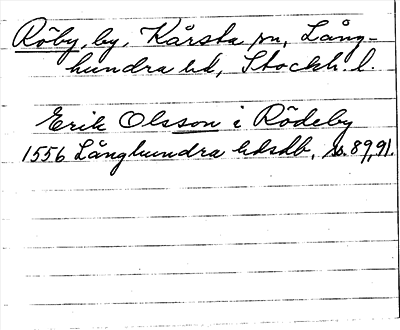 Röby, by, Kårsta sn, Lång-
hundra hd, Stockh. l.
Erik Olsson i Rödeby
1556 Långhundra hdsdb, s. 89, 91.